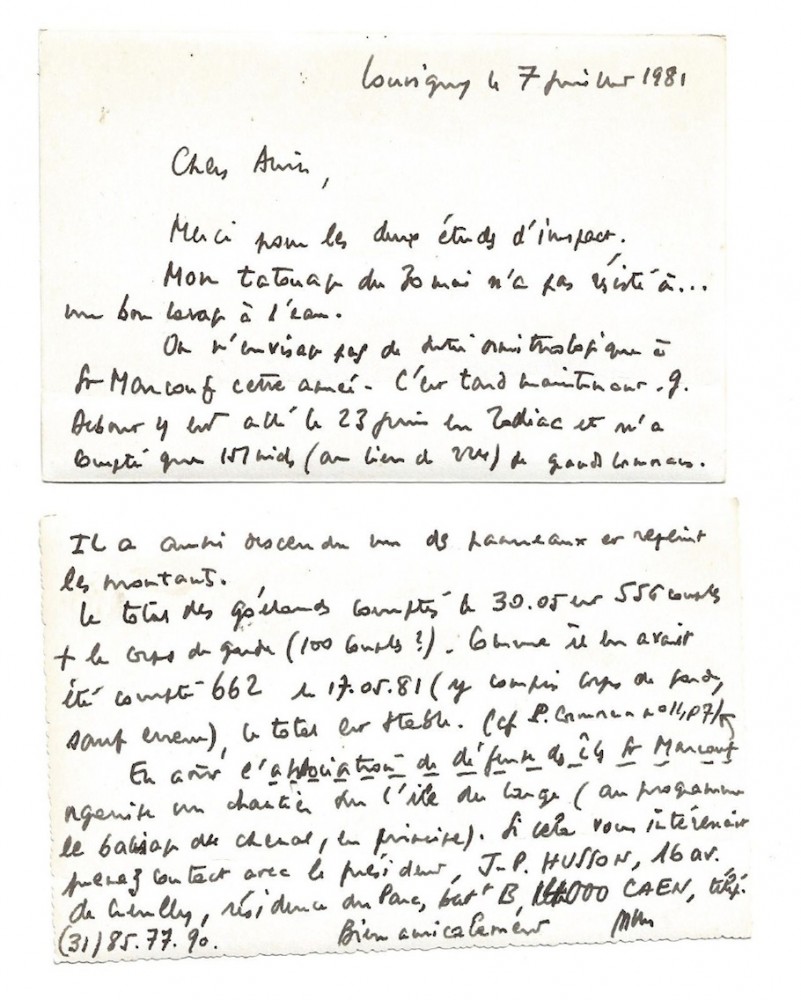 Louvigny le 7 juillet 1981
Chers Amis,
Merci pour les deux études d'impact.
Mon tatouage du 30 mai n'a pas résisté à...
un bon lavage à l'eau.
On n'envisage pas de sortie ornithologique à
St Marcouf cette année. C'est tard maintenant. G.
Debout y est allé le 23 juin en Zodiac et n'a
compté que 151 nids (au lieu de 224) de grands cormorans.
Il a aussi descendu un des panneaux et repeint
les montants.
Le total des goélands comptés le 30.05 est 556 couples
+ le corps de garde (100 couples ?). Comme il en avait
été compté 662 le 17.05.81 (y compris corps de garde,
sauf erreur), le total est stable. (cf P. Cormoran n° 11, p 7)
En août l'association de défense des îles St Marcouf
organise un chantier sur l'île du large (au programme
le balisage du chenal, en principe). Si cela vous intéressait
prenez contact avec le président, J-P. HUSSON, 16 av.
de Creully, résidence du Parc, bat B, 14000 CAEN, télép.
(31) 85.77.90. Bien amicalement